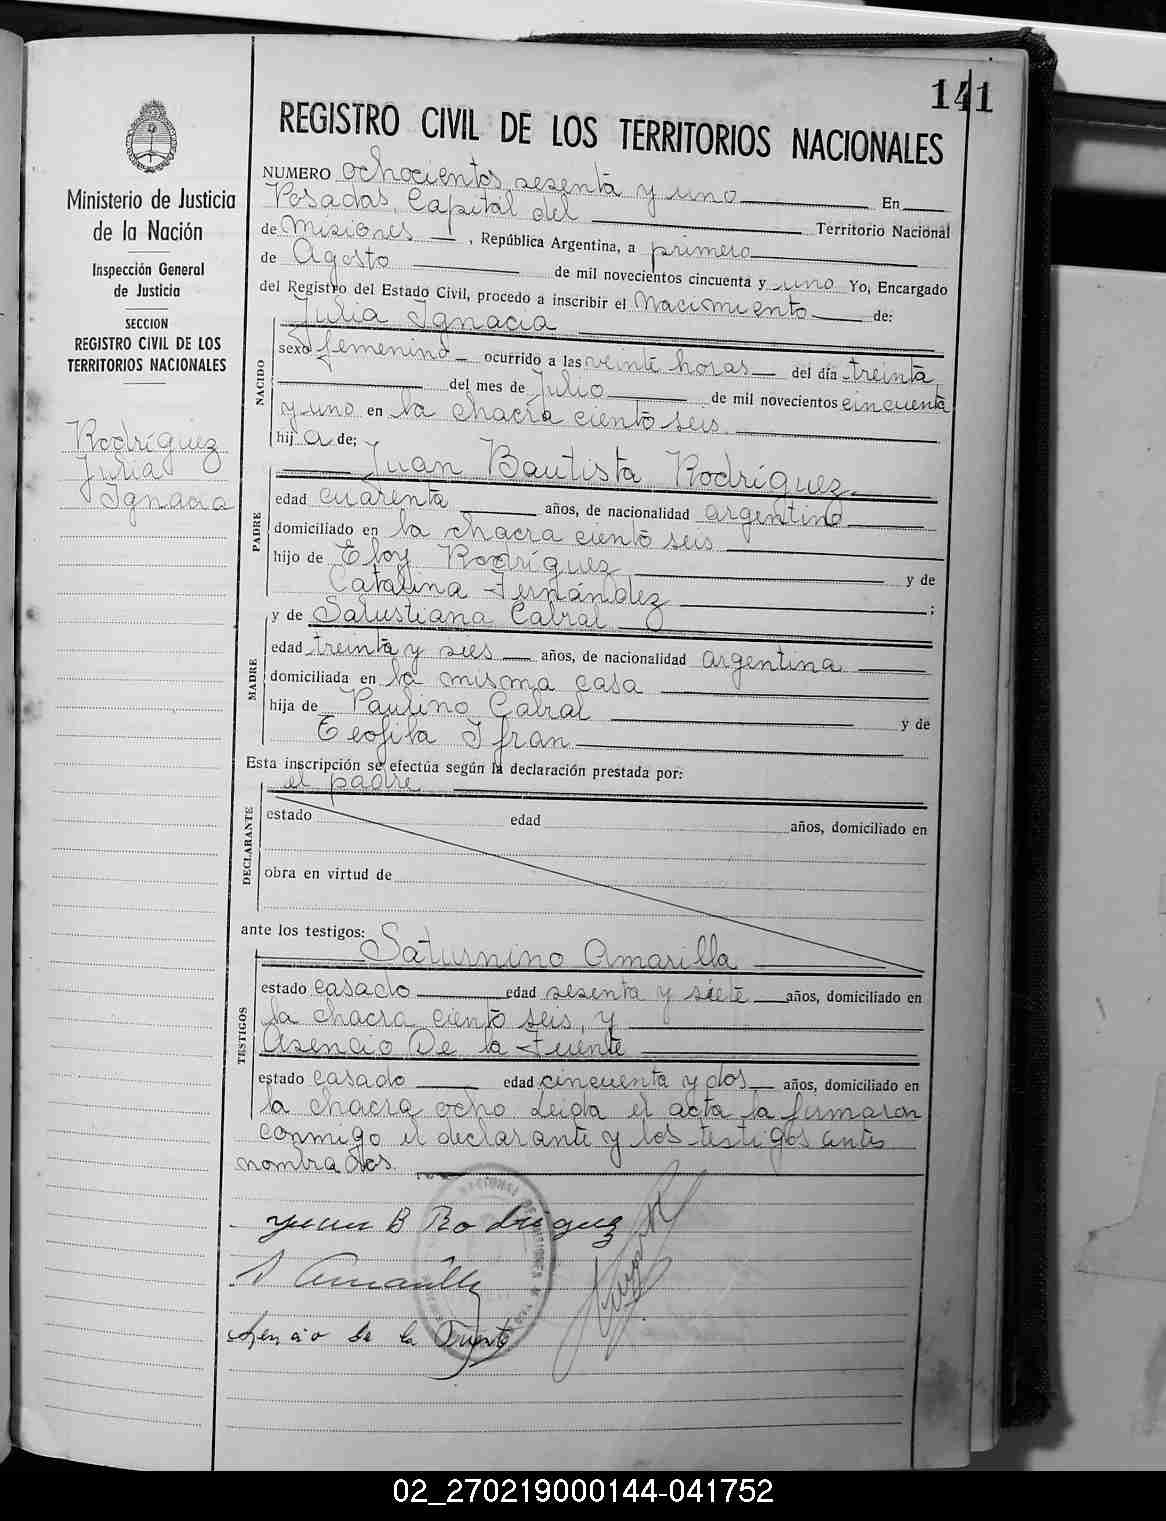 141
REGISTRO CIVIL DE LOS TERRITORIOS NACIONALES
Ministerio de Justicia
de la Nación
Inspección General
de Justicia
SECCION
REGISTRO CIVIL DE LOS
TERRITORIOS NACIONALES
Rodríguez
Julia
Ignacia
NUMERO ochocientos sesenta y uno En
Posadas, Capital del Territorio Nacional
de Misiones, República Argentina, a primero
de Agosto de mil novecientos cincuenta y uno Yo, Encargado
del Registro del Estado Civil, procedo a inscribir el Nacimiento de:
NACIDO
Julia Ignacia
sexo femenino ocurrido a las veinte horas del día treinta
del mes de Julio de mil novecientos cincuenta
y uno en la chacra ciento seis.
hija de;
PADRE
Juan Bautista Rodríguez
edad cuarenta años, de nacionalidad argentino
domiciliado en la chacra ciento seis
hijo de Eloy Rodríguez y de
Catalina Fernández ;
y de Salustiana Cabral
MADRE
edad treinta y sies años, de nacionalidad argentina
domiciliada en la misma casa
hija de Paulino Cabral y de
Teofila Ifran
Esta inscripción se efectúa según la declaración prestada por:
el padre
DECLARANTE
estado edad años, domiciliado en
obra en virtud de
ante los testigos:
TESTIGOS
Saturnino Amarilla
estado casado edad sesenta y siete años, domiciliado en
la chacra ciento seis, y
Asencio De la Fuente
estado casado edad cincuenta y dos años, domiciliado en
la chacra ocho. Leida el acta la firmaron
conmigo el declarante y los testigos antes
nombrados.
Juan B Rodriguez
S Amarilla
Asencio de la Fuente
02_270219000144-041752